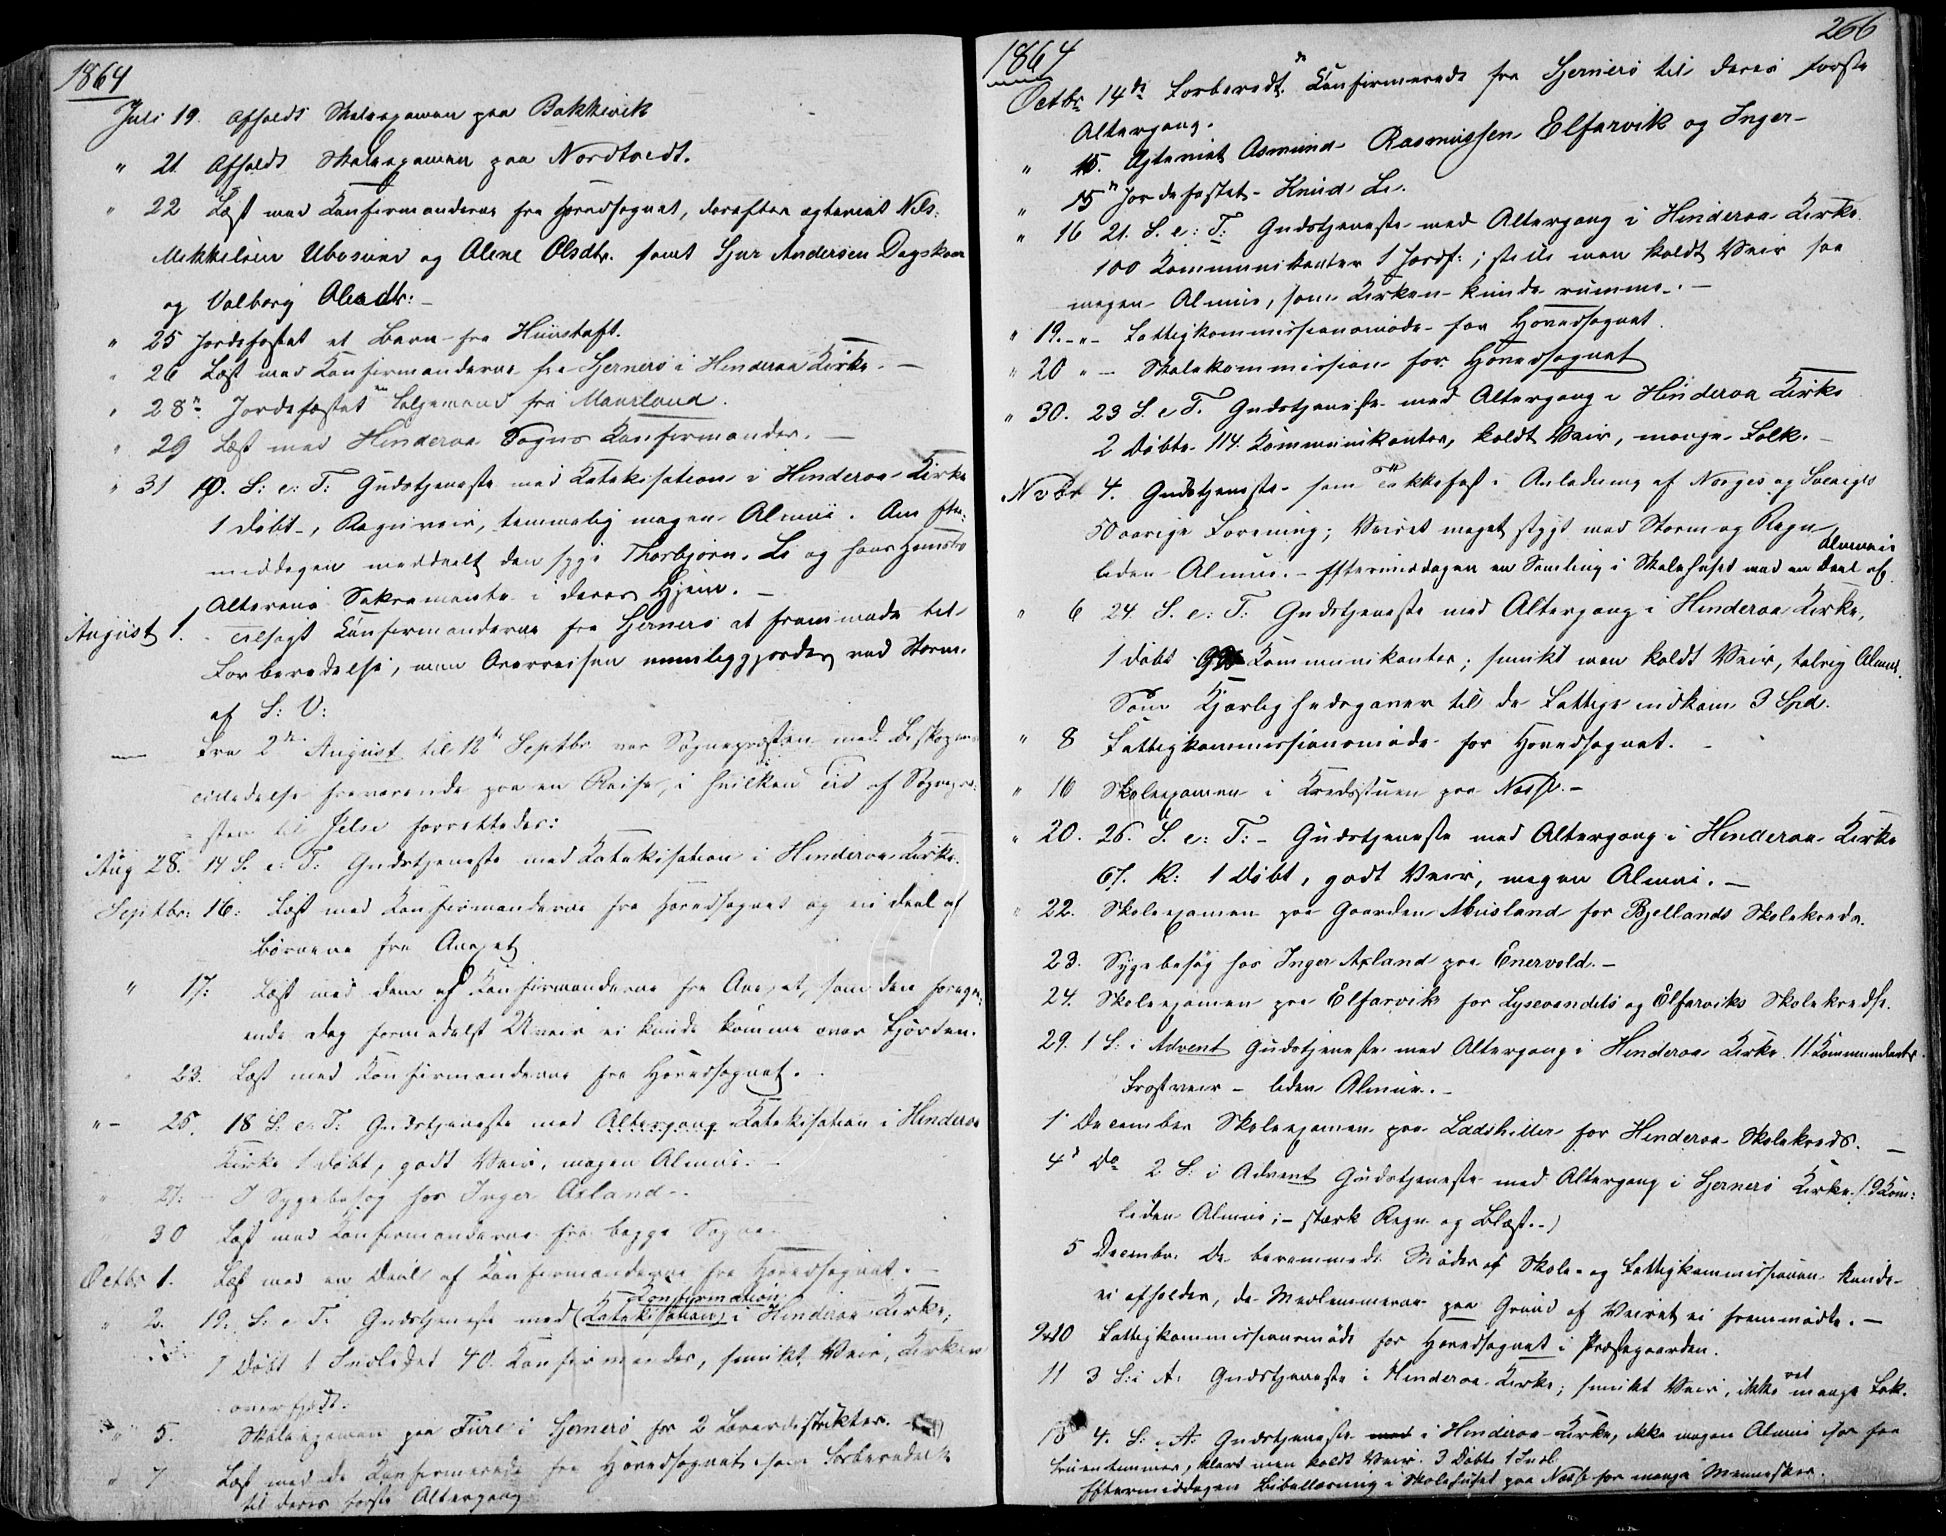 1864
Juli 19. Afholdt Skoleexamen paa Bakkevik
" 21. Afholdt Skoleexamen paa Nordtvedt.
" 22 Læst med Konfirmanderne fra Hovedsognet, derefter ægteviet Nils
Mikkelsen Ubøsund og Alene Olsdtr. samt Sjur Andersen Dagskaar
og Valborg Olsdtr:-
" 25 Jordfæstet et Barn fra Huustoft.
" 26 Læst med Konfirmanderne fra Sjernerø i Hinderaa Kirke. —
" 28 Jordfæstet en fra Maurland.
" 29 Læst med Hinderaa Sogns Konfirmander. —
" 31 10. S: e: T: Gudstjeneste med Katekisation i Hinderaa Kirke
1 Døbt, Regnveir, temmelig megen Almue. Om Efter-
middagen meddeelt den syge Thorbjørn Li og hans Hustru
Alterens Sakramente i deres Hjem. —
August 1. Tilsagt Konfirmanderne fra Sjernerø at fremmøde til
Forberedelse, men Overreisen umuliggjordes ved Storm
af S: V:
— Fra 2den August til 12te Septbr var Sognepræsten med Biskoppens
Tilladelse fraværende paa en Reise, i hvilken Tid af Sognepræ-
sten til Jelse forrettedes:
Aug 28. 14 S. e: T: Gudstjeneste med Katekisation i Hinderaa Kirke.
Septbr: 16: Læst med Konfirmanderne fra Hovedsognet og en Deel af
Børnene fra Annexet
" 17: Læst med dem af Konfirmanderne fra Annexet, som den foregaa-
ende Dag formedelst Uveir ei kunde komme over Fjorden.
" 23. Læst med Konfirmanderne fra Hovedsognet.
" - 25. 18 S: e: T: Gudstjeneste med Altergang Katekisation i Hinderaa
Kirke 1 Døbt, godt Veir, megen Almue. —
" 27: - I Sygebesøg hos Inger Axland -
" 30 Læst med Konfirmanderne fra begge Sogne.
Octbr 1. Læst med en Deel af Konfirmanderne fra Hovedsognet. —
Konfirmation
" 2. 19. S. e T. Gudstjeneste med (Katekisation) i Hinderaa Kirke;
1 Døbt 1 Indledet 40 Konfirmander, smukt Veir, Kirken
overfyldt.
" 5. Skoleexamen paa Fure i Sjernerø for 2 Læredistrikter.
" 7 Læst med de Konfirmerede fra Hovedsognet som Forberedelse
til deres første Altergang
1864
266
Octbr 14de Forberedt de Konfirmerede fra Sjernerø til deres første
Altergang.
" 15. Ægteviet Asmund Rasmussen Elfarvik og Inger-
" 15 Jordfæstet Knud Li.
" 16 21. S. e: T: Gudstjeneste med Altergang i Hinderaa Kirke.
100 Kommunikanter 1 Jordf: ; stille men koldt Veir saa
megen Almue, som Kirken kunde rumme. —
" 19. -"- Fattigkommissionsmøde for Hovedsognet.
" 20 " - Skolekommission for Hovedsognet
" 30. 23 S. e T. Gudstjeneste med Altergang i Hinderaa Kirke
2 Døbte 114 Kommunikanter, koldt Veir, mange Folk. —
Novbr 4. Gudstjeneste som Takkefest i Anledning af Norges og Sverigs
50 aarige Forening; Veiret meget stygt med Storm og Regn,
liden Almue. - Eftermiddagen en Samling i Skolehuset med en Deel af
Almuen
" 6 24. S. e: T: Gudstjeneste med Altergang i Hinderaa Kirke,
1 døbt Kommunikanter; smukt men koldt Veir, talrig Almue.
Som Kjærlighedsgaver til de Fattige indkom 3 Spd.
" 8 Fattigkommissionsmøde for Hovedsognet. —
" 16 Skoleexamen i Kredsstuen paa Næsse. -
" 20. 26. S. e: T: - Gudstjeneste med Altergang i Hinderaa Kirke
67. K: 1 Døbt, godt Veir, megen Almue. —
" 22. Skoleexamen paa Gaarden Musland for Bjellands Skolekreds.
23. Sygebesøg hos Inger Axland paa Enervold. -
24. Skoleexamen paa Elfarvik for Lysevandets og Elfarviks Skolekredse.
29. 1 S: i Advent Gudstjeneste med Altergang i Hinderaa Kirke. 11 Kommunikanter.
Frostveir - liden Almue. -
1 December Skoleexamen paa Ladshiller for Hinderaa Skolekreds. —
4 Do 2 S: i Advent Gudstjeneste med Altergang i Sjernerø Kirke. 19 Kom:
liden Almue; - stærk Regn og Blæst. -)
5 Decembr. De berammede Møder af Skole- og Fattigkommissionen kunde
ei afholdes, da Medlemmerne paa Grund af Veiret ei fremmødte. —
9de Fattigkommissionsmøde for Hovedsognet i Præstegaarden.
11 3 S: i A: Gudstjeneste i Hinderaa Kirke; smukt Veir, ikke ret mange Folk.
18 4. S: i A: Gudstjeneste med i Hinderaa Kirke, ikke megen Almue saa faa
Fruentimmer, klart men koldt Veir. 3 Døbte 1 Indl.
Eftermiddagen Bibellæsning i Skolehuset paa Næsse for mange Mennesker.